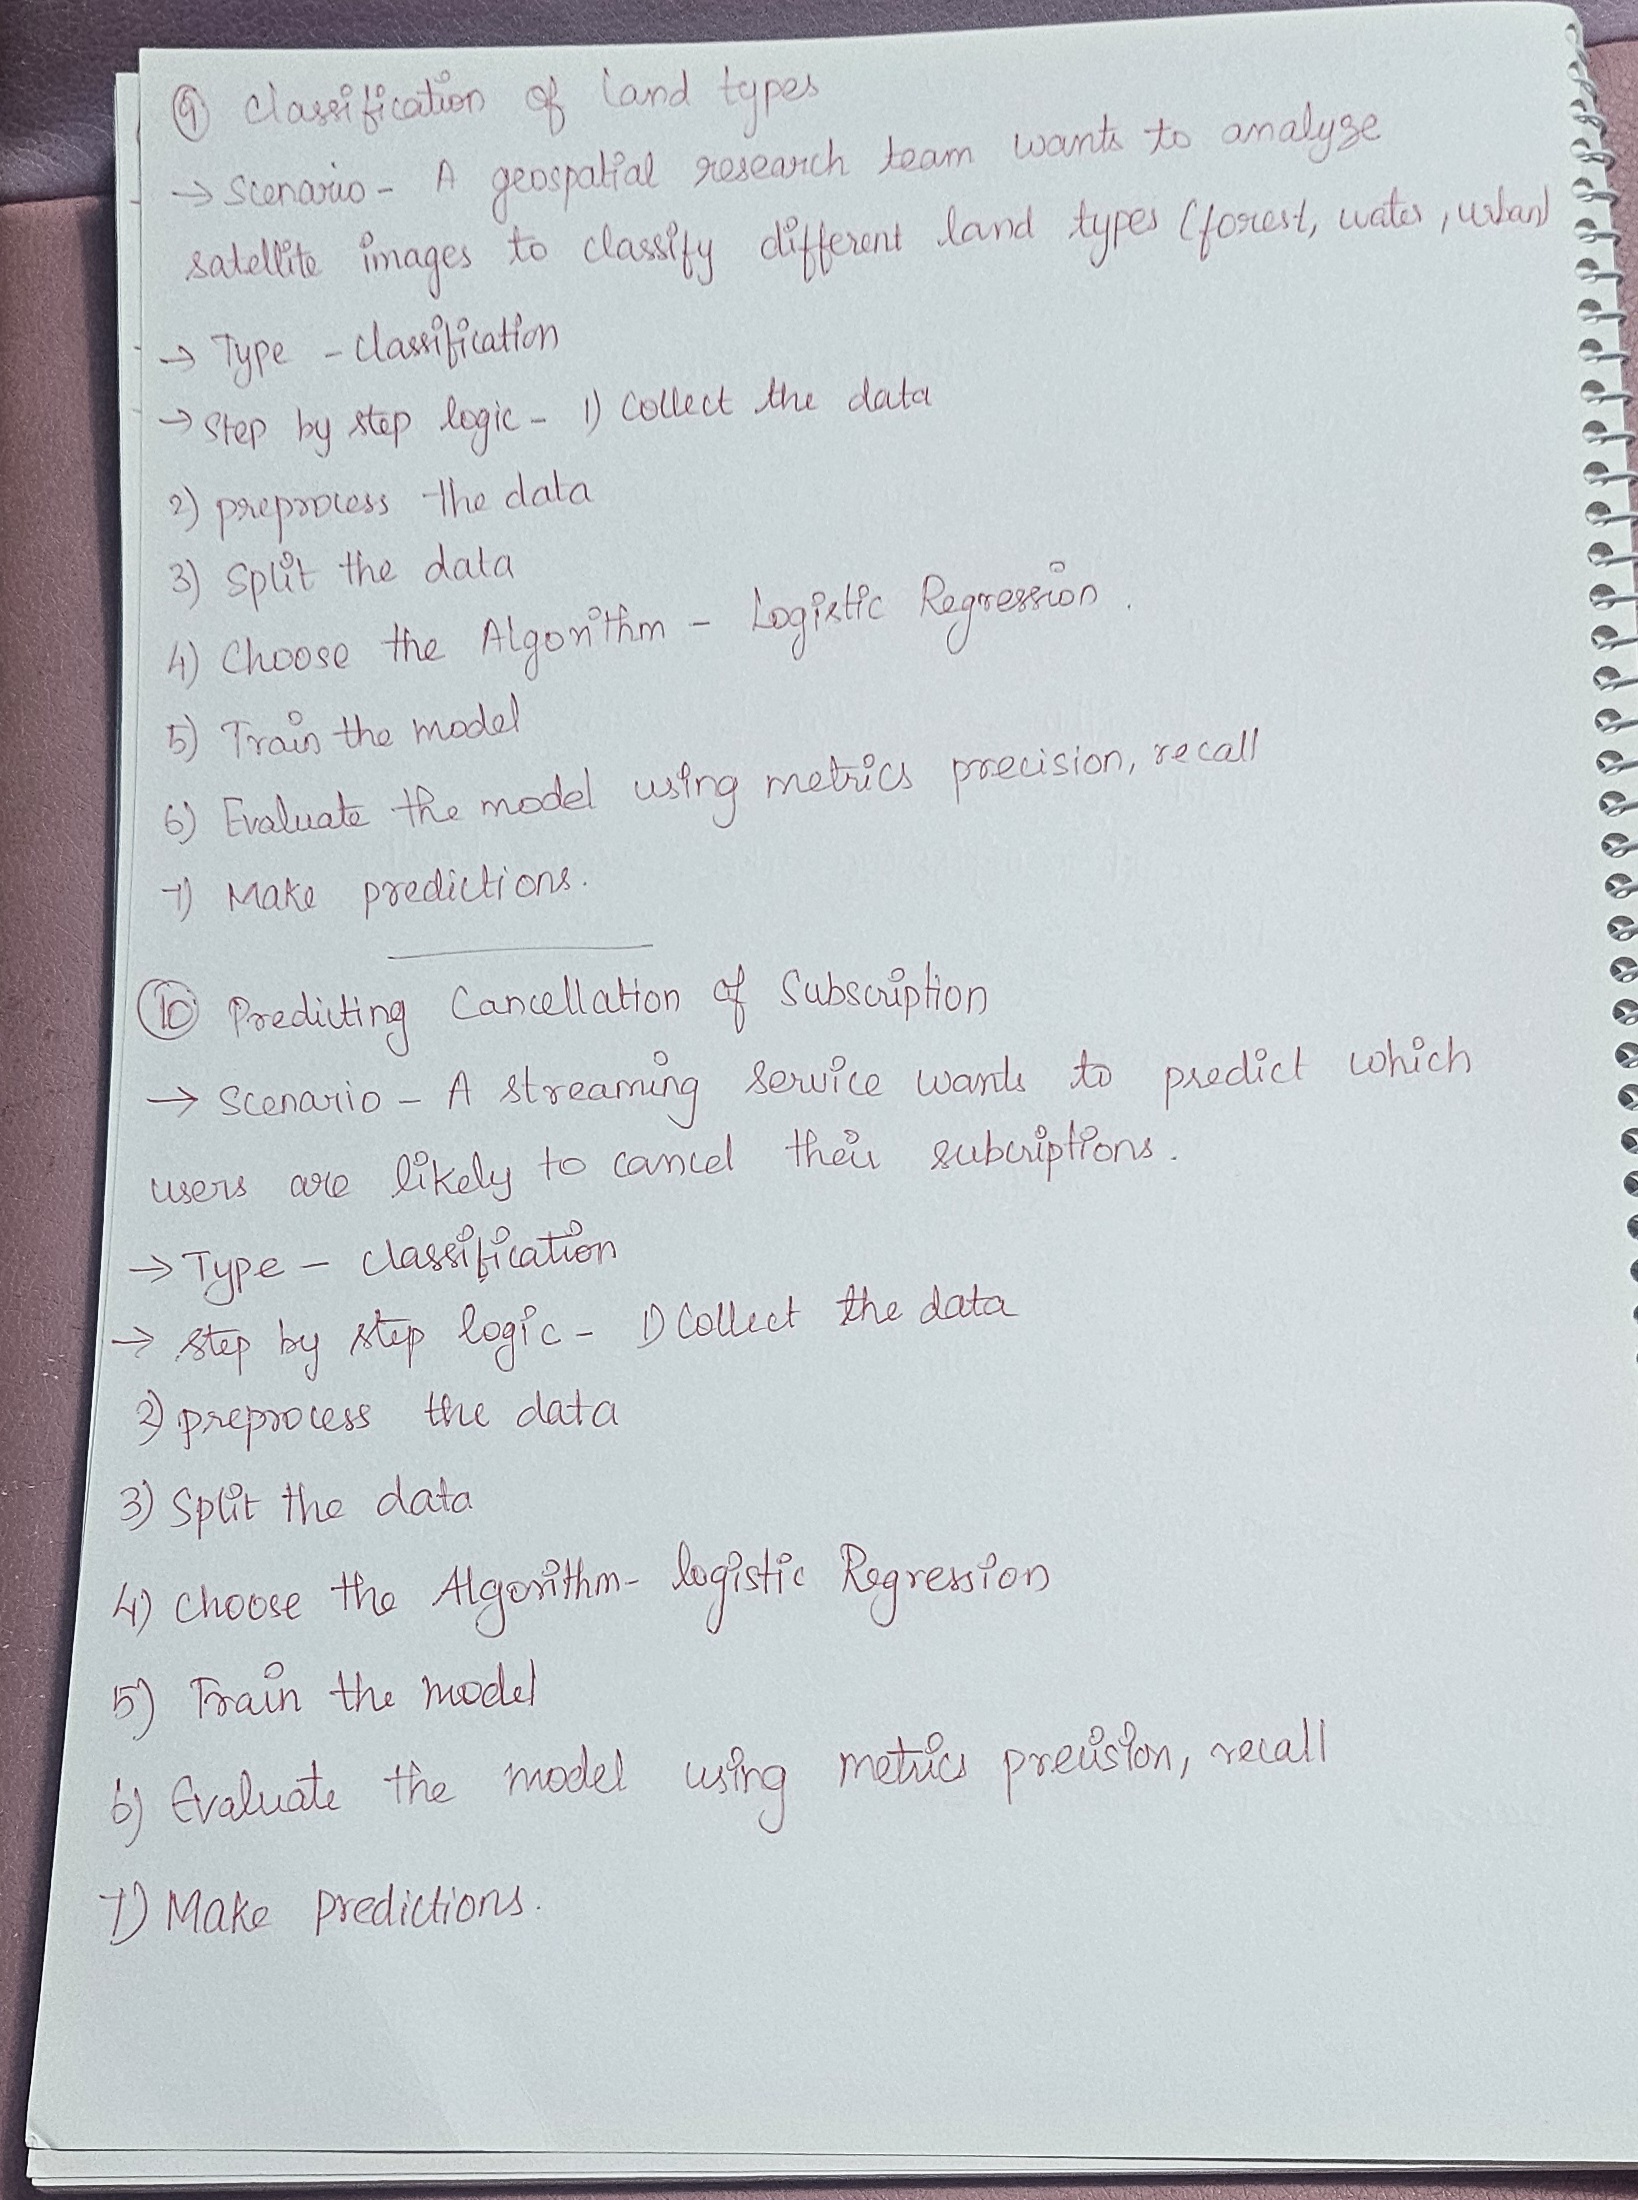 ⑨ Classification of land types
→ Scenario - A geospatial research team wants to analyze
satellite images to classify different land types (forest, water, urban)
→ Type - Classification
→ Step by step logic - 1) Collect the data
2) preprocess the data
3) Split the data
4) Choose the Algorithm - Logistic Regression.
5) Train the model
6) Evaluate the model using metrics precision, recall
7) Make predictions.
⑩ Predicting Cancellation of Subscription
→ Scenario - A streaming service wants to predict which
users are likely to cancel their subcriptions.
→ Type - classification
→ step by step logic - 1) Collect the data
2) preprocess the data
3) Split the data
4) Choose the Algorithm - logistic Regression
5) Train the model
6) Evaluate the model using metrics precision, recall
7) Make predictions.